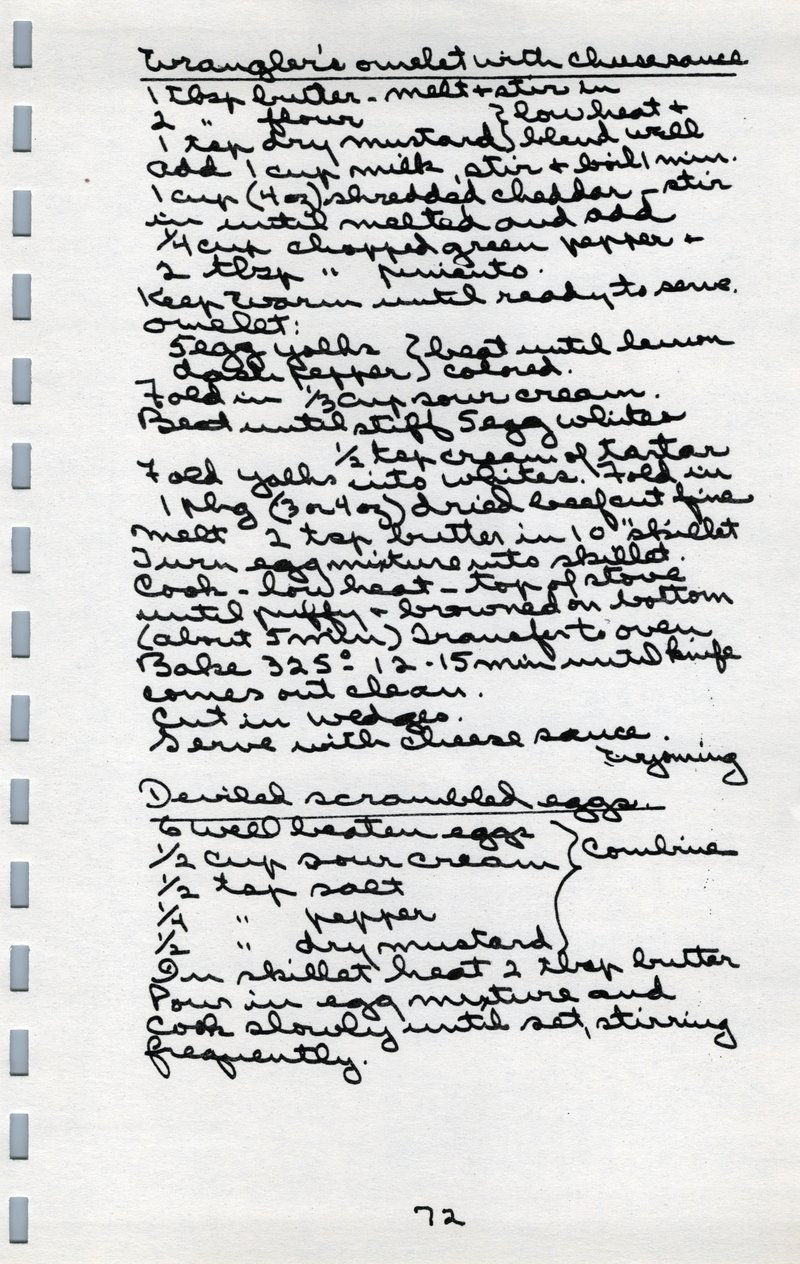 Wrangler's omelet with cheese sauce
1 tbsp butter - melt + stir in
2 " flour } low heat +
1 tsp dry mustard } blend well
add 1 cup milk, stir + boil 1 min.
1 cup (4 oz) shredded cheddar - stir
in until melted and add
1/4 cup chopped green pepper +
2 tbsp " pimiento.
Keep warm until ready to serve.
omelet:
5 egg yolks } beat until lemon
dash pepper } colored.
Fold in 1/3 cup sour cream.
Beat until stiff 5 egg whites
1/2 tsp cream of tartar
Fold yolks into whites. Fold in
1 pkg (3 or 4 oz) dried beef cut fine
Melt 2 tsp butter in 10" skillet
Turn egg mixture into skillet.
Cook - low heat - top of stove
until puffy + browned on bottom
(about 5 min) Transfer to oven
Bake 325° 12-15 min until knife
comes out clean.
Cut in wedges.
Serve with cheese sauce.
Wyoming
Deviled scrambled eggs.
6 well beaten eggs
1/2 cup sour cream } Combine
1/2 tsp salt
1/4 " pepper
1/2 " dry mustard
In skillet heat 2 tbsp butter
Pour in egg mixture and
cook slowly until set, stirring
frequently.
72